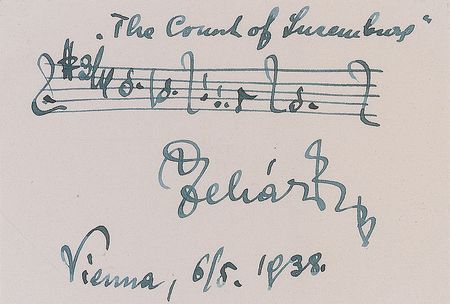 „The Count of Luxemburg“
3/4
Lehár
Vienna, 6/5. 1938.